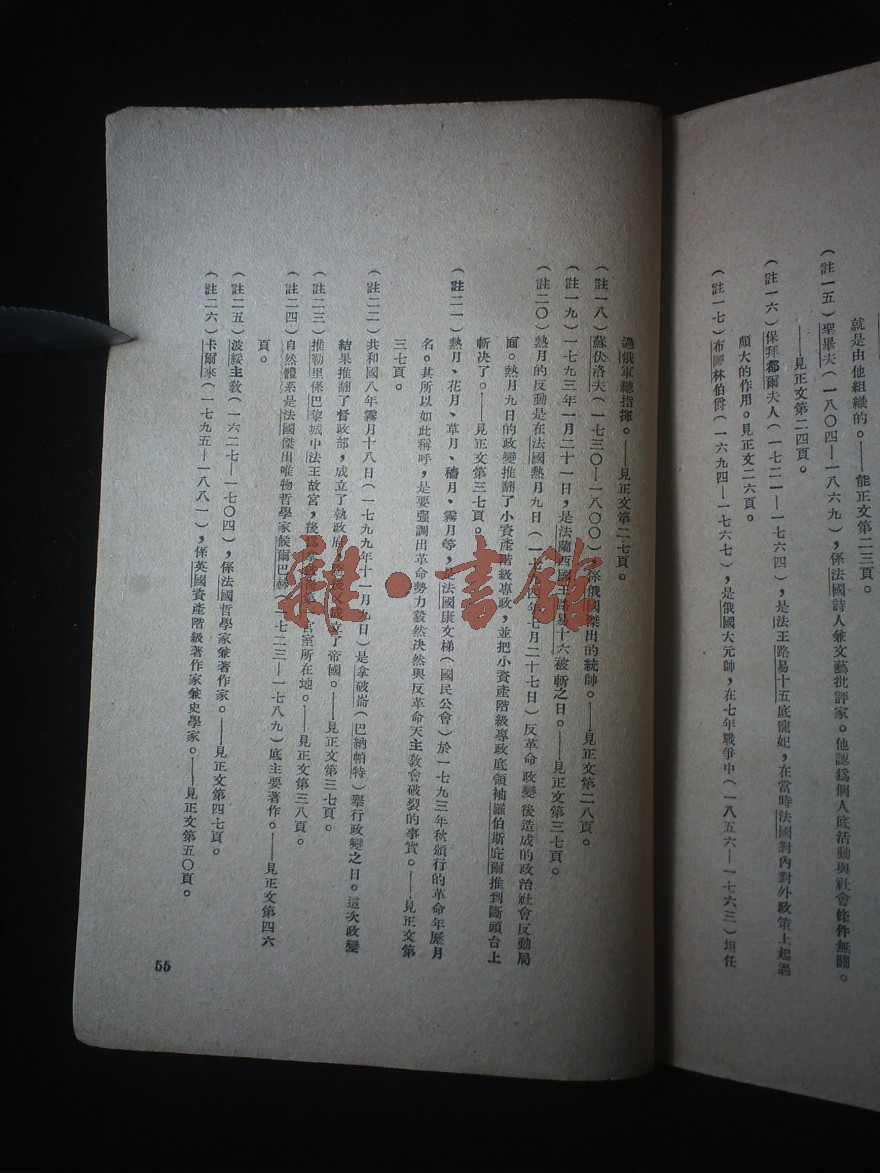 就是由他組織的。——能正文第二三頁。
（註一五）聖畢夫（一八〇四—一八六九），係法國詩人兼文藝批評家。他認爲個人底活動與社會條件無關。
——見正文第二四頁。
（註一六）保拜都爾夫人（一七二一—一七六四），是法王路易十五底寵妃，在當時法國對內對外政策上起過
頗大的作用。見正文二六頁。
（註一七）布 林伯爵（一六九四—一七六七），是俄國大元帥，在七年戰爭中（一八五六—一七六三）担任
過俄軍總指揮。——見正文第二七頁。
（註一八）蘇伏洛夫（一七三〇—一八〇〇），係俄國傑出的統帥。——見正文第二八頁。
（註一九）一七九三年一月二十一日，是法蘭西國王路易十六被斬之日。——見正文第三七頁。
（註二〇）熱月的反動是在法國熱月九日（一七九 年七月二十七日）反革命政變後造成的政治社會反動局
面。熱月九日的政變推翻了小資產階級專政，並把小資產階級專政底領袖羅伯斯庇爾推到斷頭台上
斬決了。——見正文第三七頁。
（註二一）熱月、花月、草月、穡月、霧月等，是法國康文梯（國民公會）於一七九三年秋頒行的革命年歷月
名。其所以如此稱呼，是要强調出革命勢力毅然決然與反革命天主教會破裂的事實。——見正文第
三七頁。
（註二二）共和國八年霧月十八日（一七九九年十一月九日）是拿破崙（巴納帕特）舉行政變之日。這次政變
結果推翻了督政部，成立了執政府， 又成立了帝國。——見正文第三七頁。
（註二三）推勒里係巴黎城中法王故宮，後爲 宮室所在地。——見正文第三八頁。
（註二四）自然體系是法國傑出唯物哲學家候爾巴赫（一七二三—一七八九）底主要著作。——見正文第四六
頁。
（註二五）波綏主教（一六二七—一七〇四），係法國哲學家兼著作家。——見正文第四七頁。
（註二六）卡爾來（一七九五—一八八一），係英國資產階級著作家兼史學家。——見正文第五〇頁。
55
雜·書館